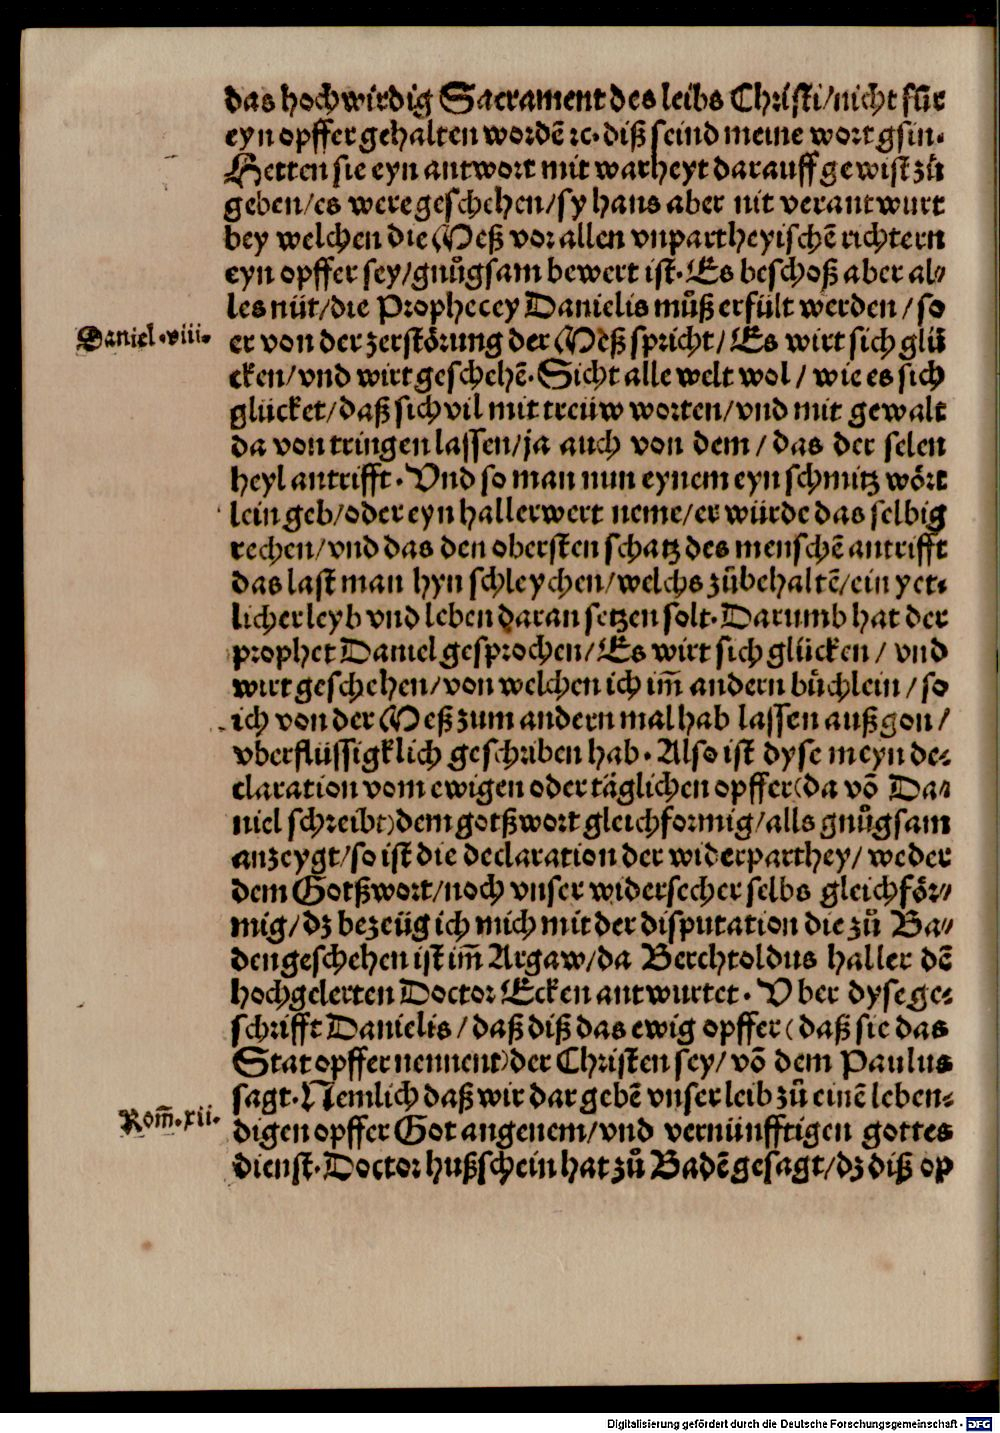 das hochwirdig Sacrament des leibs Christi/nicht für
eyn opffer gehalten wordē ꝛc. diß seind meine wort gsin.
Hetten sie eyn antwort mit warheyt darauff gewist zů
geben/es were geschehen/sy hans aber nit verantwurt
bey welchen die Meß vor allen vnpartheyischē richtern
eyn opffer sey/gnůgsam bewert ist. Es beschoß aber al⸗
les nüt/die Prophecey Danielis můß erfült werden/so
Daniel.viii.
er von der zerstörung der Meß spricht/Es wirt sich glü
cken/vnd wirt geschehē. Sicht alle welt wol/wie es sich
glücket/daß sich vil mit treüw worten/vnd mit gewalt
da von tringen lassen/ja auch von dem/das der selen
heyl antrifft. Vnd so man nun eynem eyn schmitz wört
lein geb/oder eyn hallerwert neme/er würde das selbig
rechen/vnd das den obersten schatz des menschē antrifft
das last man hyn schleychen/welchs zůbehaltē/ein yet⸗
licher leyb vnd leben daran setzen solt. Darumb hat der
prophet Daniel gesprochen/Es wirt sich glücken/vnd
wirt geschehen/von welchen ich im̄ andern büchlein/so
ich von der Meß zum andern mal hab lassen außgon/
vberflüssigklich geschriben hab. Also ist dyse meyn de⸗
claration vom ewigen oder täglichen opffer(da vō Da⸗
niel schreibt)dem gotßwort gleichformig/alls gnůgsam
anzeygt/so ist die declaration der widerparthey/weder
dem Gotßwort/noch vnser widersecher selbs gleichför⸗
mig/dz bezeüg ich mich mit der disputation die zů Ba⸗
den geschehen ist im̄ Argaw/da Berchtoldus haller dē
hochgelerten Doctor Ecken antwurtet. Vber dyse ge⸗
schrifft Danielis/daß diß das ewig opffer(daß sie das
Stat opffer nennent)der Christen sey/vō dem Paulus
sagt. Nemlich daß wir dar gebē vnser leib zů einē leben⸗
Rom̄.xii.
digen opffer Got angenem/vnd vernünfftigen gottes
dienst. Doctor hußschein hat zů Badē gesagt/dz diß op
Digitalisierung gefördert durch die Deutsche Forschungsgemeinschaft - DFG